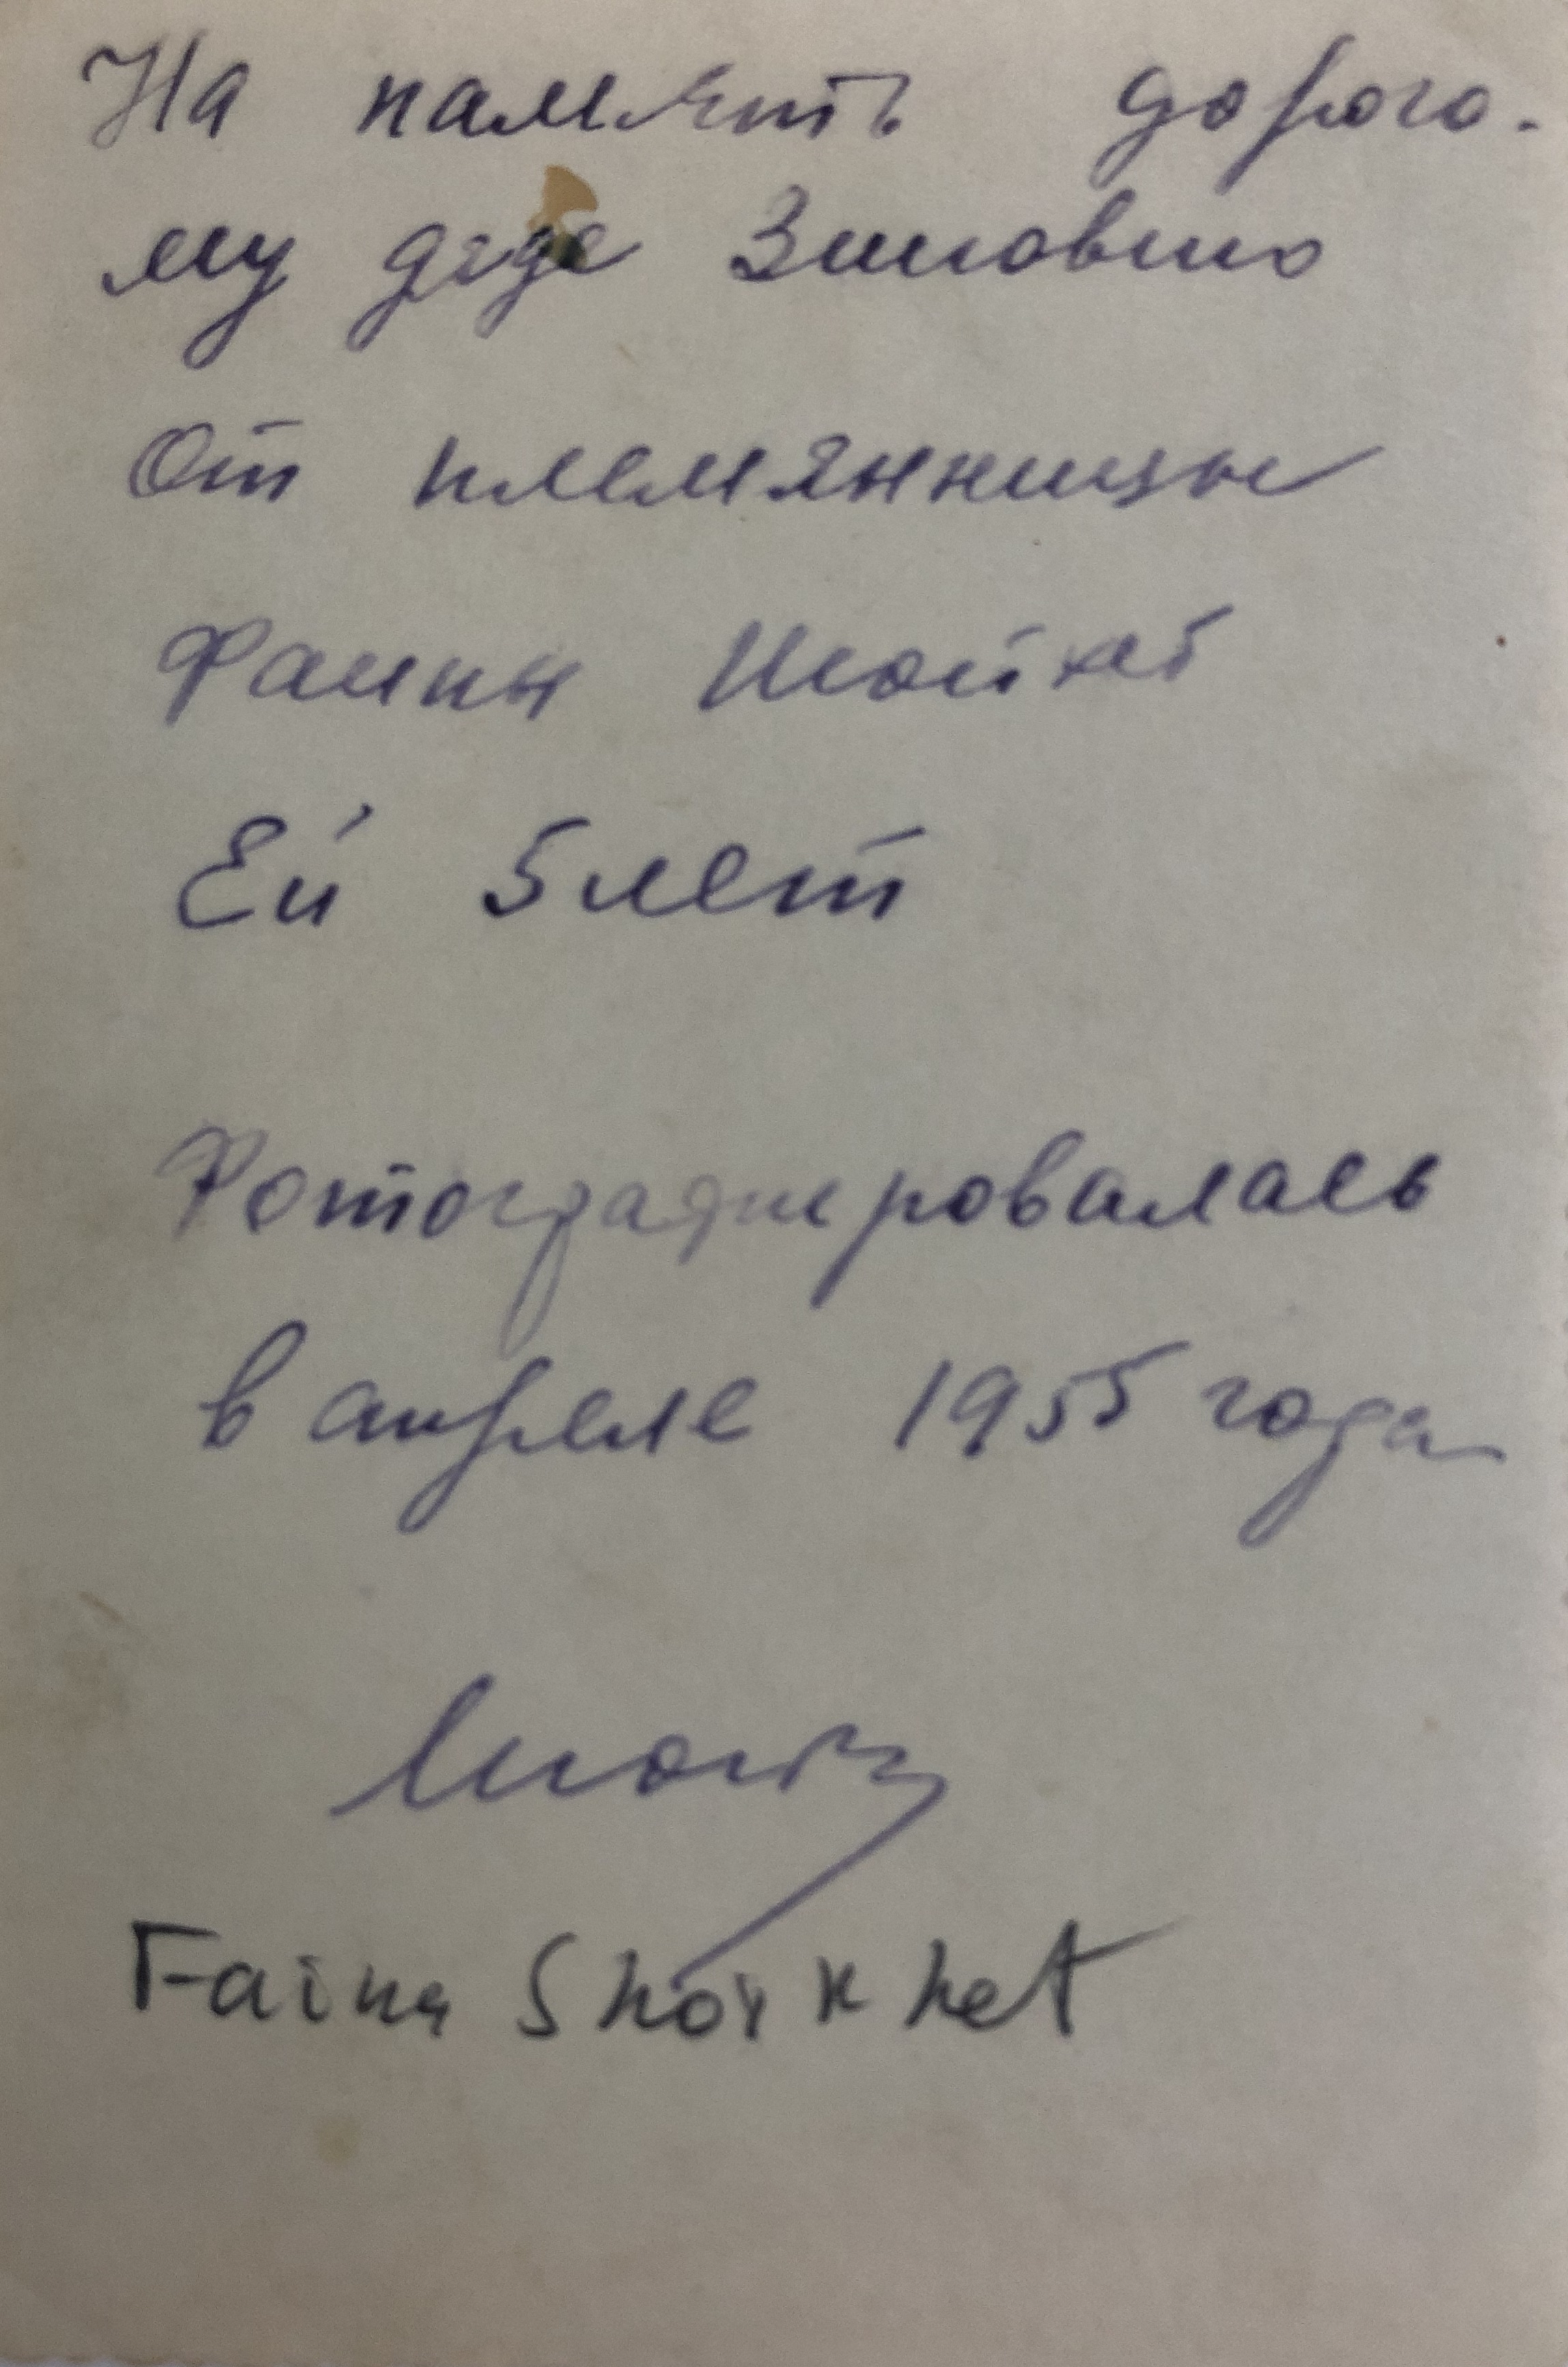 На память дорого-
му дяде Зиновию
От племянницы
Фаины Шойхет
Ей 5 лет
Фотографировалась
в апреле 1955 года
Faina Shoikhet